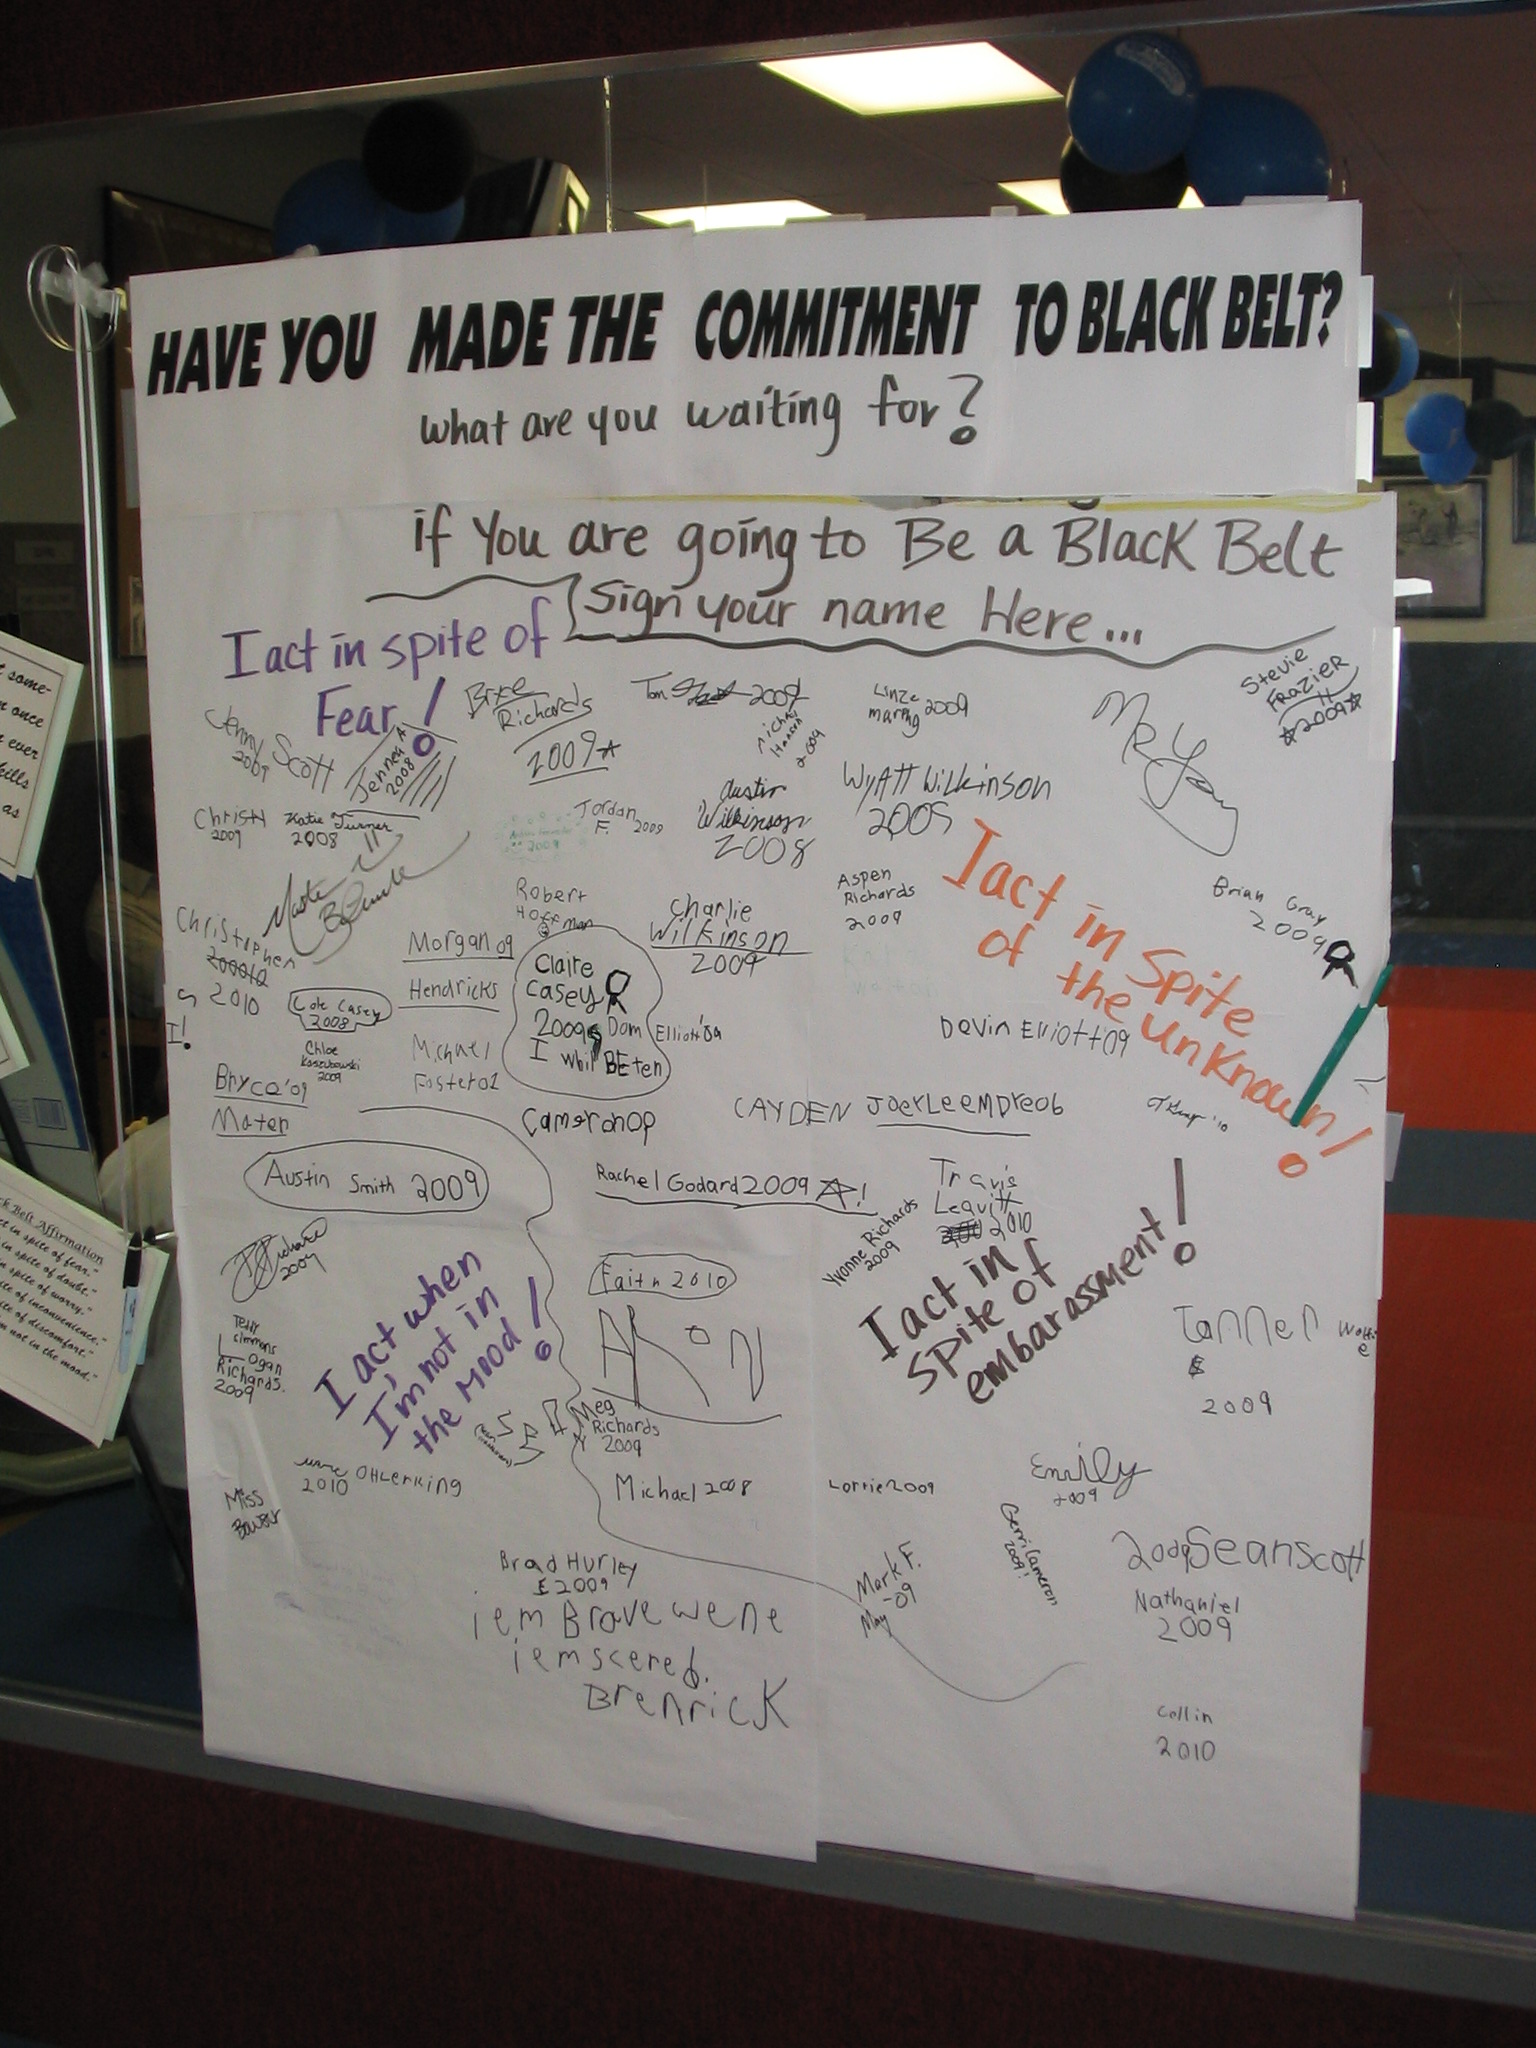 HAVE YOU MADE THE COMMITMENT TO BLACK BELT?
what are you waiting for?
if You are going to Be a Black Belt
Sign your name Here...
I act in spite of
Fear!
Stevie
Frazier
2009
Brye
Richards
2009
Tom 2009
2009
Jenny Scott
2009
Jenney A
2008
Wyatt Wilkinson
2005
Austin
Wilkinson
2008
Jordan
F. 2009
Christi
2009
Katie Turner
2008
Master
Mr
I act in Spite
of the unknown!
Aspen
Richards
2009
Brian Gray
2009
Robert
Hoffman
Charlie
Wilkinson
2009
Christopher
2010
Morgan 09
Hendricks
Claire
Casey
2009
I whil BEten
Dom Elliott'09
Cole Casey
2008
I!
Chloe
Koszubowski
2009
Michael
Foster
Devin Elliott 09
Bryce'09
Mater
Cameron
CAYDEN
Austin Smith 2009
Rachel Godard 2009 !
Travis
Leavitt
2010
Yvonne Richards
2009
Richards
Faith 2010
I act when
I'm not in
the Mood!
I act in
Spite of
embarassment!
Tanner
2009
Teddy
Simmons
Logan
Richards.
2009
Meg
Richards
2009
2010 OHLerking
Michael 2008
Lorrie 2009
Emily
2009
Miss
Gerri Cameron
2009!
2009 Sean Scott
Brad Hurley
2009
Mark F.
May -09
Nathaniel
2009
iem Brave wene
iem scered.
Brenrick
Collin
2010
some-
once
ever
kills
as
Belt Affirmation
in spite of fear."
in spite of doubt."
spite of worry."
of inconvenience."
of discomfort."
not in the mood."